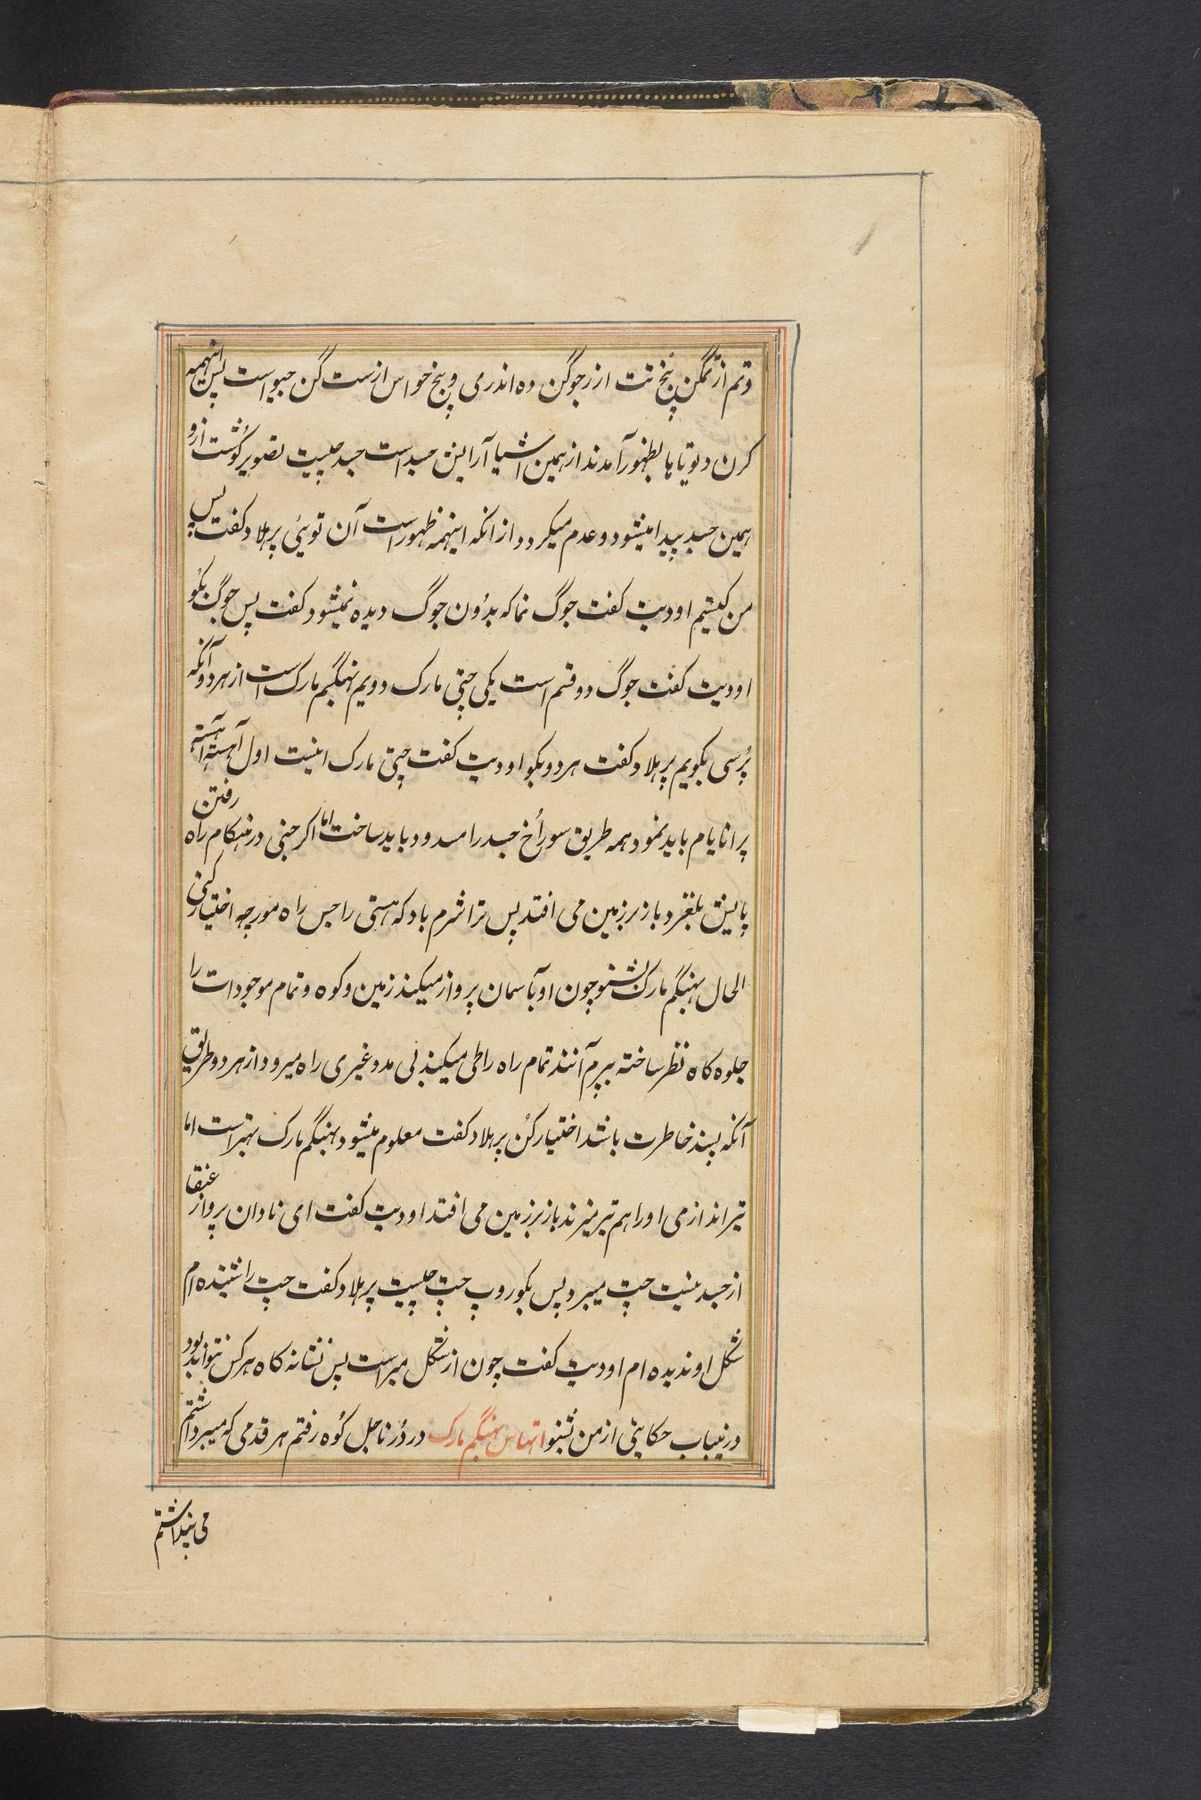 وتم از تمگن پنج تت از رجوگن ده اندری و پنج حواس از ست گن جیو است پس اینهمه
کرن دیوتاها بظهور آمدند از همین اشیا آرایش جسد است جسد چیست تصویر گوشت ازو
همین جسد پیدا میشود و عدم میکردد از انکه اینهمه ظهور است آن توئی پرهلاد کفت پس
من کیستم اودیت کفت جوگ نما که بدون جوگ دیده نمیشود کفت پس جوگ بکو
اودیت کفت جوگ دو قسم است یکی چپتی مارک دویم بهنگم مارک است از هردو آنکه
پرسی بکویم پرهلاد کفت هردو بکو اودیت کفت چپتی مارک اینست اول آهسته آهسته
پرانایام باید نمود همه طریق سوراخ جسد را مسدود باید ساخت اما اکر جنبی در هنکام راه رفتن
پایش بلغزد باز بر زمین می افتد پس ترا شرم باد که هستی راجس راه مورچه اختیار کنی
الحال بهنگم مارک بشنو چون او بآسمان پرواز میکند زمین و کوه و تمام موجودات را
جلوه کاه نظر ساخته بپرم آنند تمام راه را طی میکند بی مدد غیری راه میرود از هردو طریق
آنکه پسند خاطرت باشد اختیار کن پرهلاد کفت معلوم میشود بهنگم مارک بهتر است اما
تیراندازمی او را هم تیر میزند باز بر زمین می افتد اودیت کفت ای نادان پرواز عنقا
از جسد نیست چپت میپرد پس بکو روپ چپت چیست پرهلاد کفت چپت را شنیده ام
شکل او ندیده ام اودیت کفت چون از شکل مبراست پس نشانه کاه هر کس نتواند بود
درینباب حکایتی از من بشنو اتهاس بهنگم مارک در درناچل کوه رفتم هر قدمی که میبرداشتم
می پنداشتم